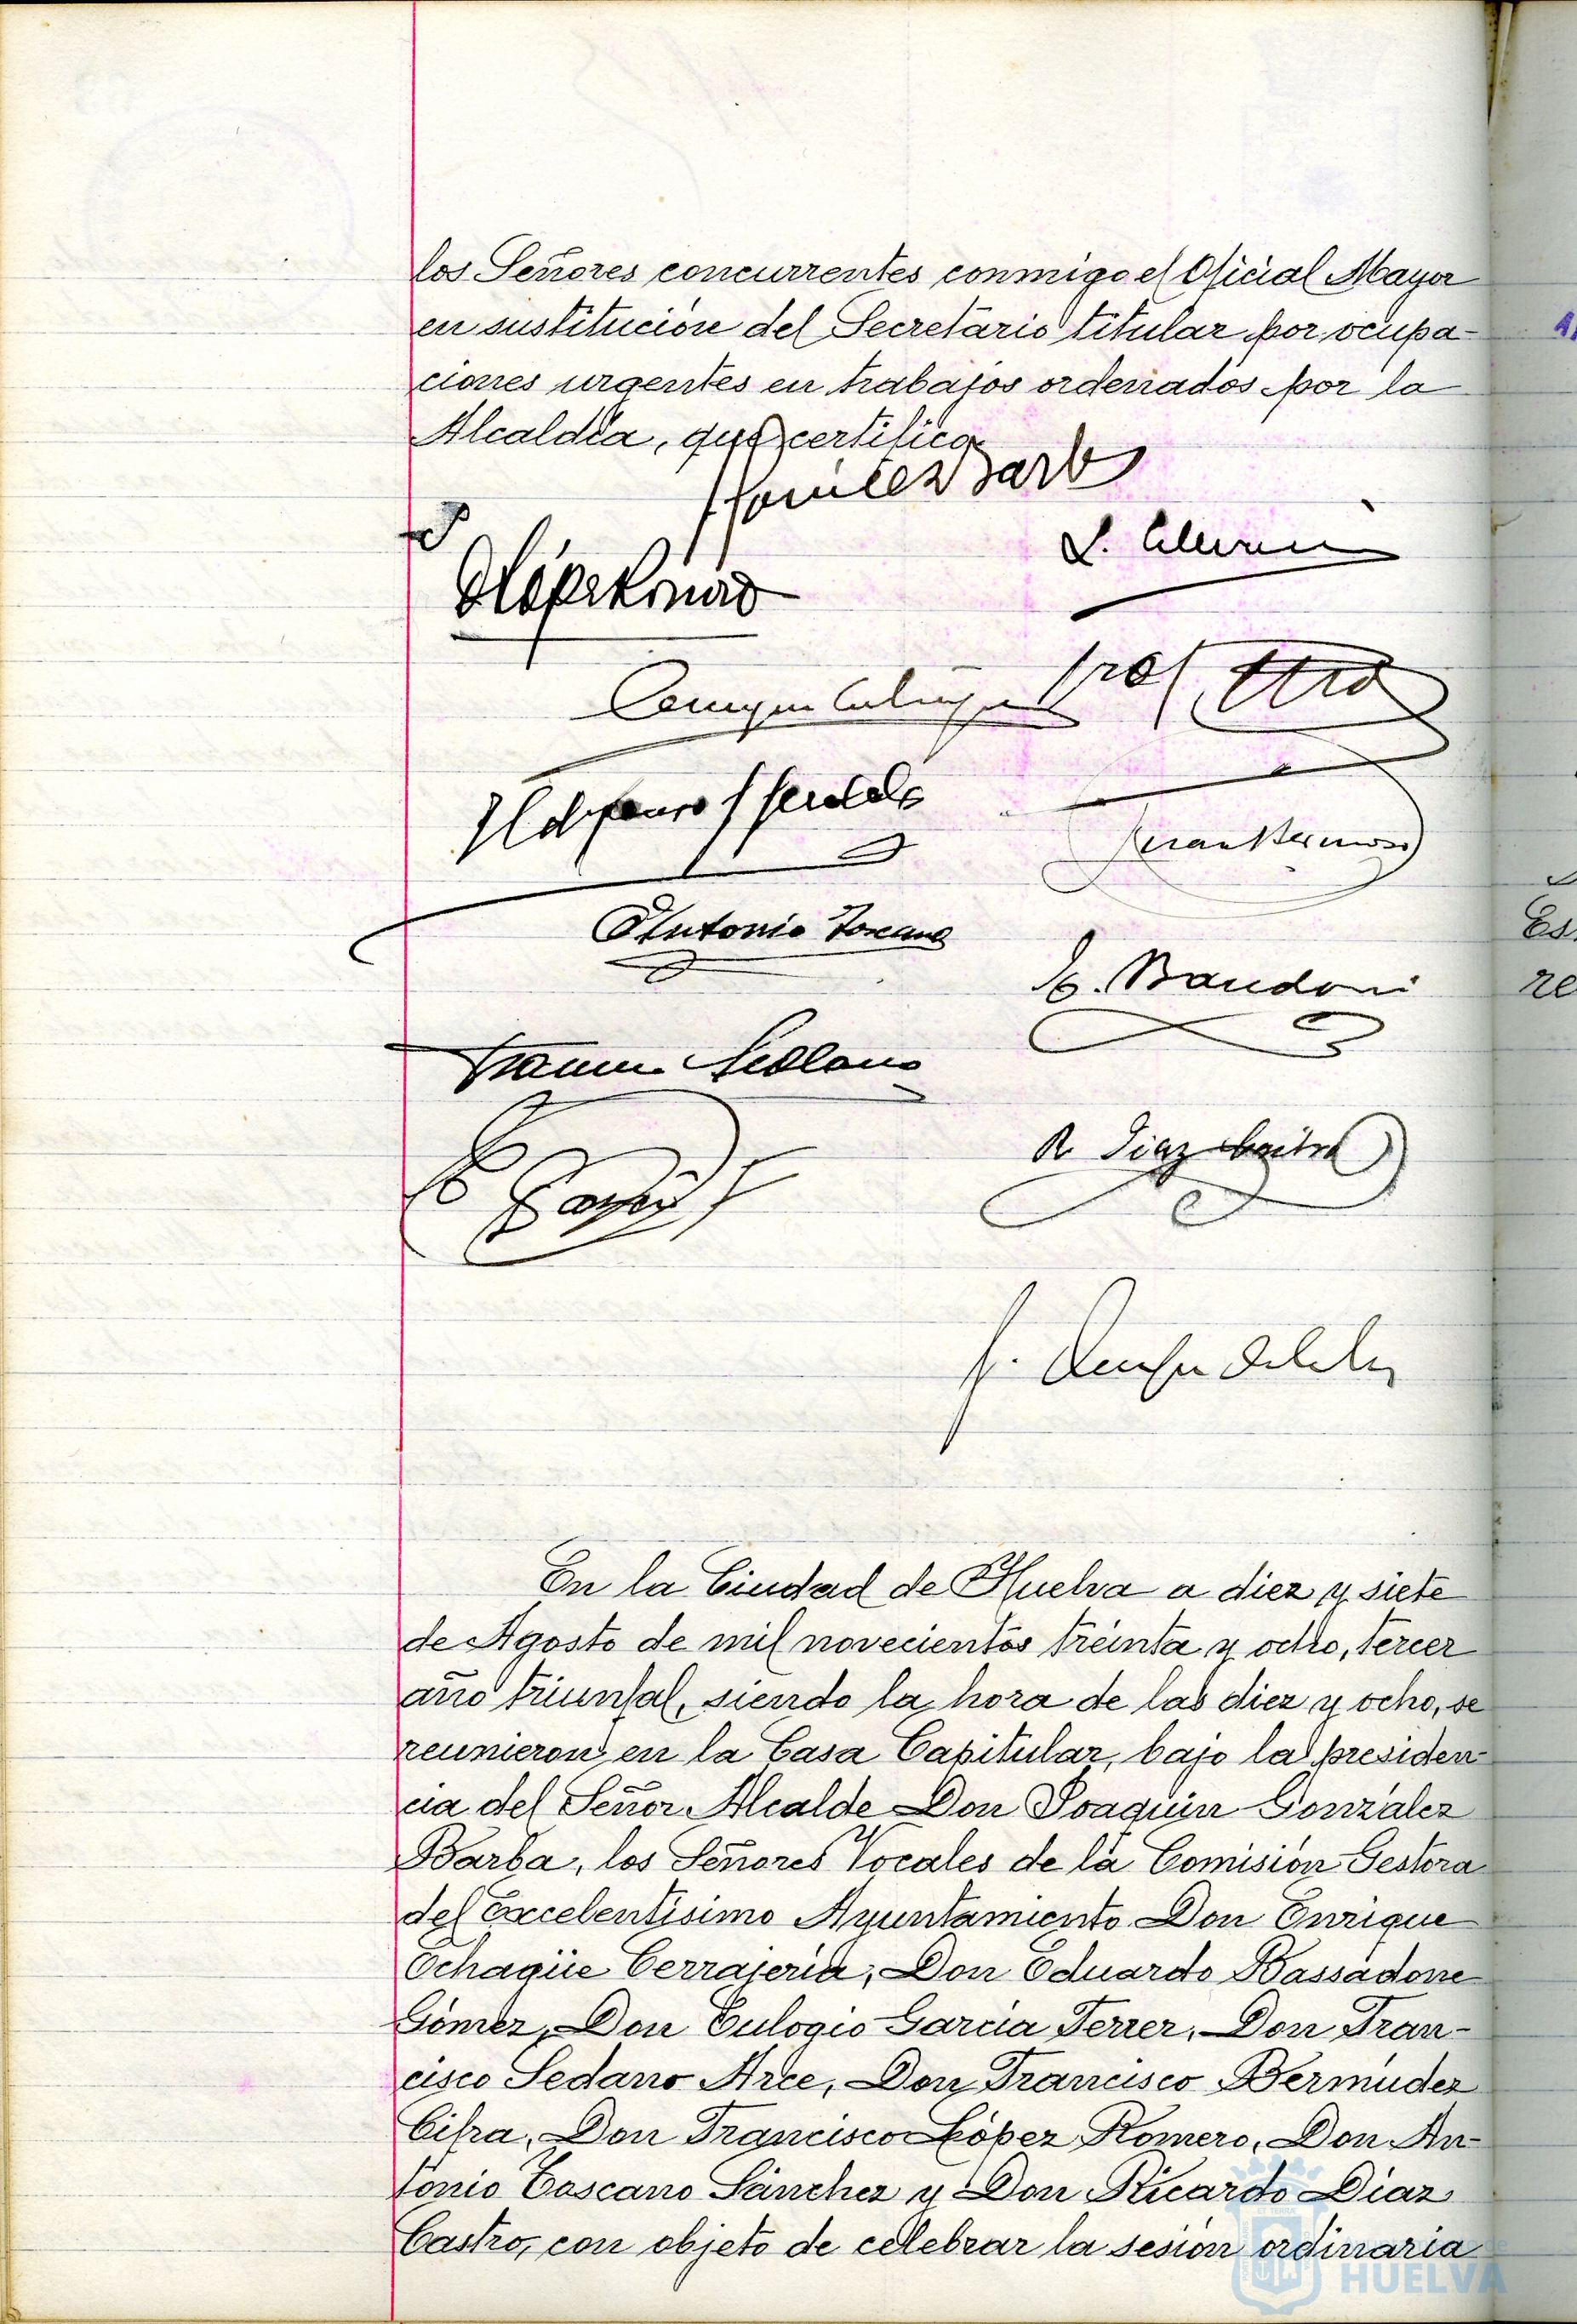 los Señores concurrentes conmigo el Oficial Mayor
en sustitución del Secretario titular por ocupa-
ciones urgentes en trabajos ordenados por la
Alcaldía, que certifico.
Antonio Toscano
R Diaz Castro
En la Ciudad de Huelva a diez y siete
de Agosto de mil novecientos treinta y ocho, tercer
año triunfal, siendo la hora de las diez y ocho, se
reunieron en la Casa Capitular, bajo la presiden-
cia del Señor Alcalde Don Joaquín González
Barba, los Señores Vocales de la Comisión Gestora
del Excelentísimo Ayuntamiento Don Enrique
Ochagüe Cerrajería, Don Eduardo Bassadone
Gómez, Don Eulogio García Ferrer, Don Fran-
cisco Sedano Arce, Don Francisco Bermúdez
Cifra, Don Francisco López Romero, Don An-
tonio Toscano Sánchez y Don Ricardo Díaz
Castro, con objeto de celebrar la sesión ordinaria
HUELVA